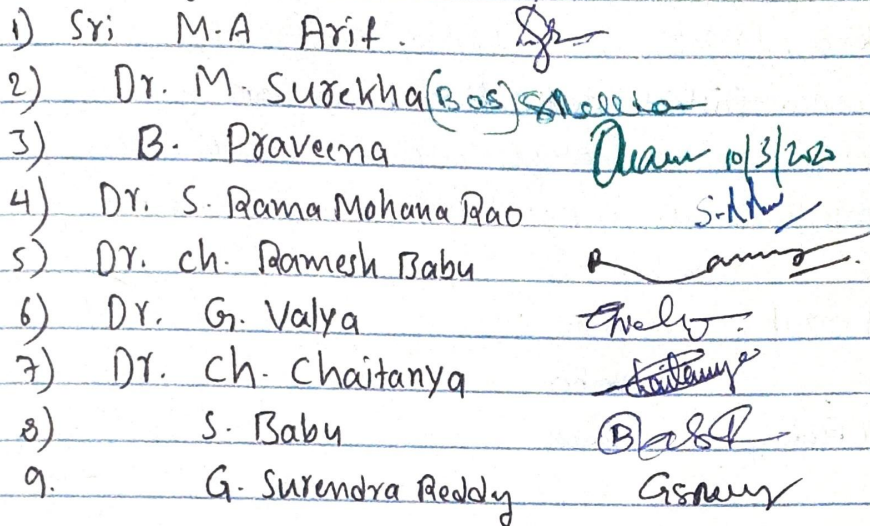 1) Sri M.A Arif.
2) Dr. M. Surekha (BaS)
3) B. Praveena 10/3/2020
4) Dr. S. Rama Mohana Rao
5) Dr. Ch. Ramesh Babu
6) Dr. G. Valya
7) Dr. Ch. Chaitanya Chaitanya
8) S. Babu
9. G. Surendra Reddy